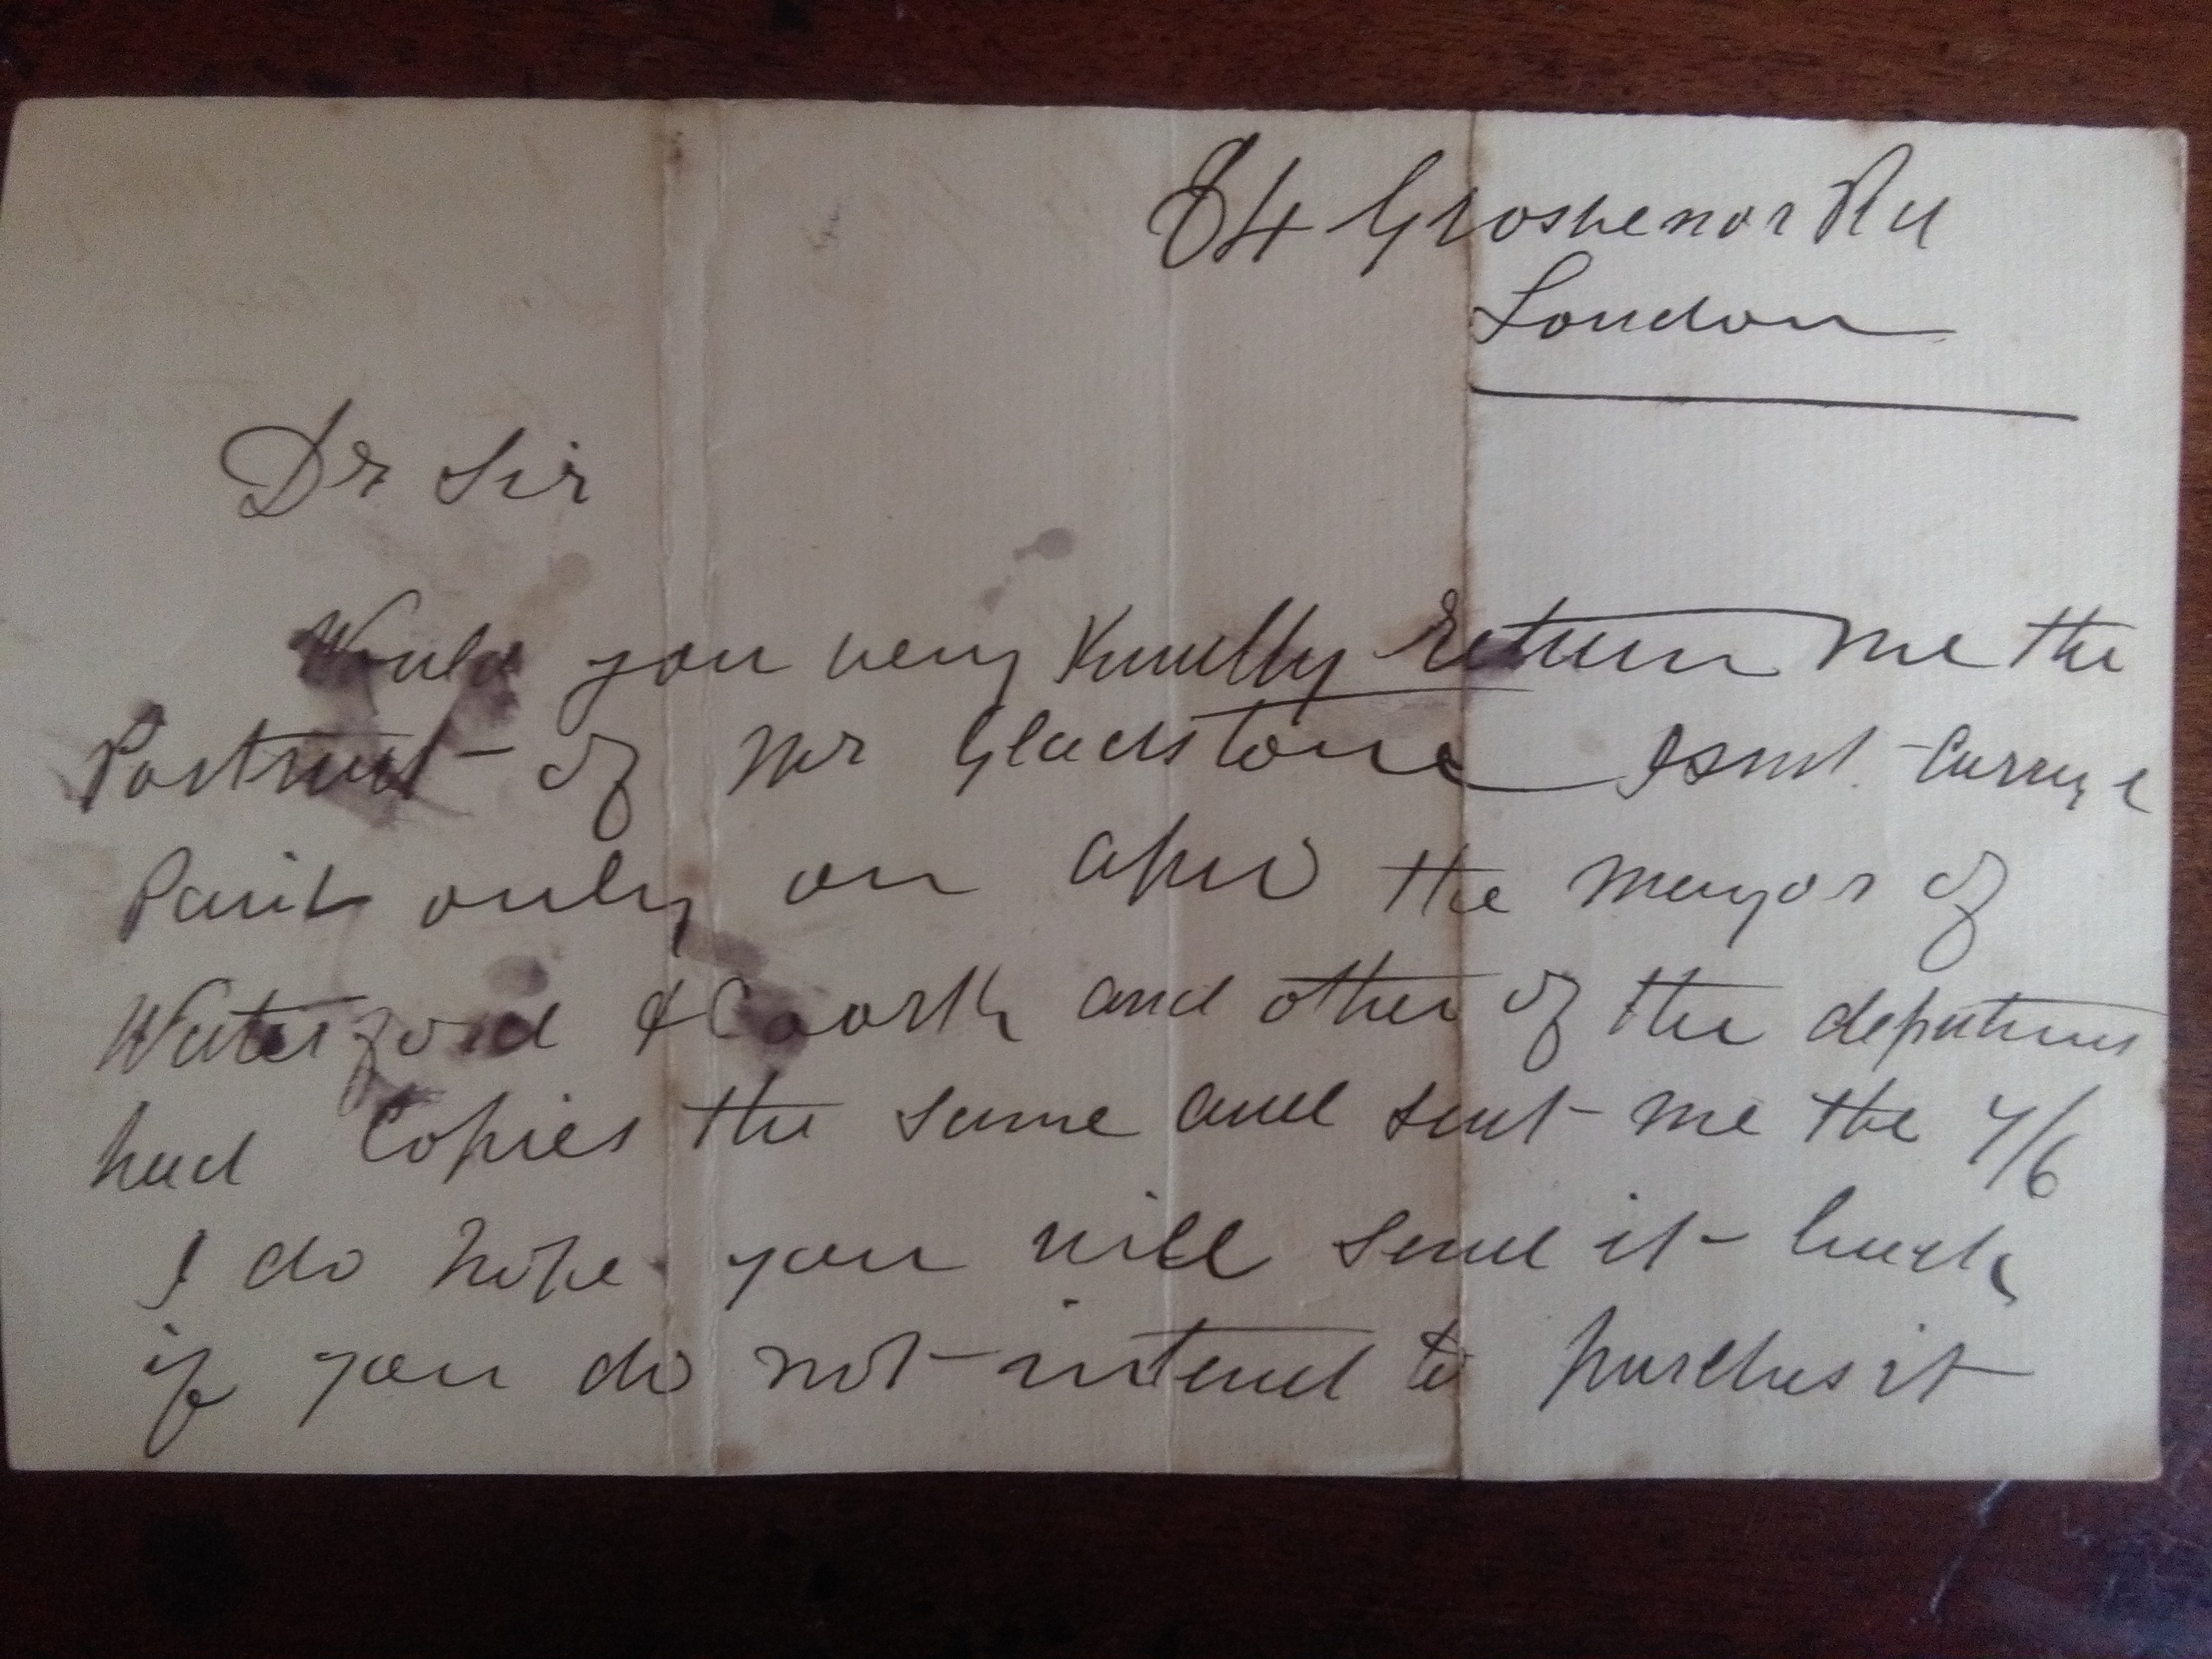 84 Grosvenor Rd
London
Dr Sir
Would you very Kindly return me the
Portrait of Mr Gladstone I sent. Carrage
Paid only on appro the Mayor of
Waterford & Coork and other of the deputeies
had Copies the same and sent me the 7/6
I do hope you will send it back
if you do not intend to purchas it